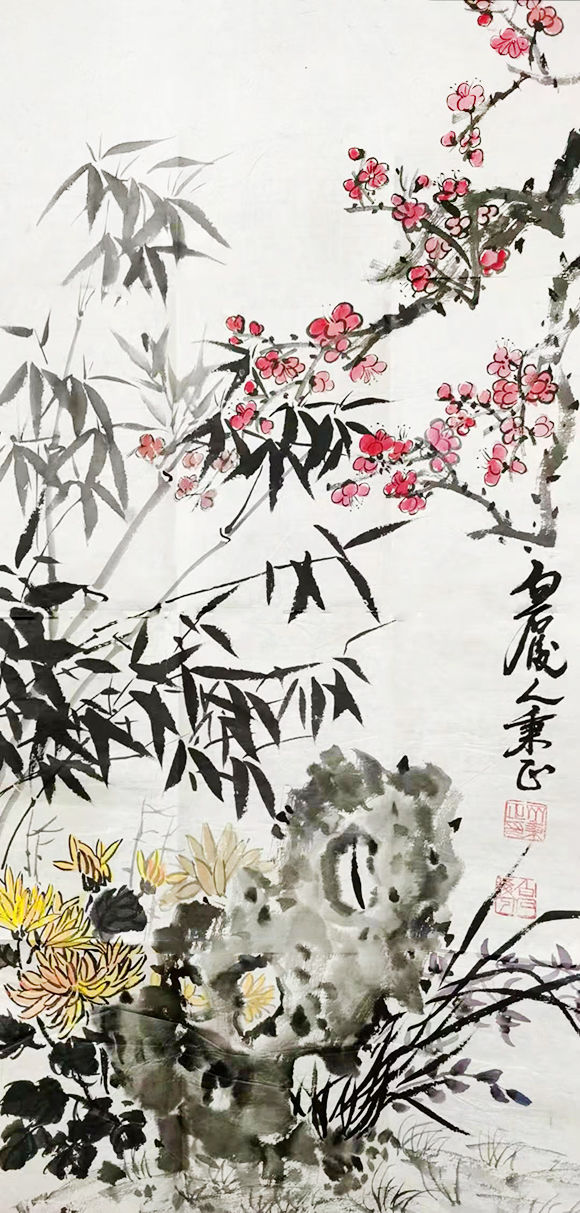 白石後人秉正